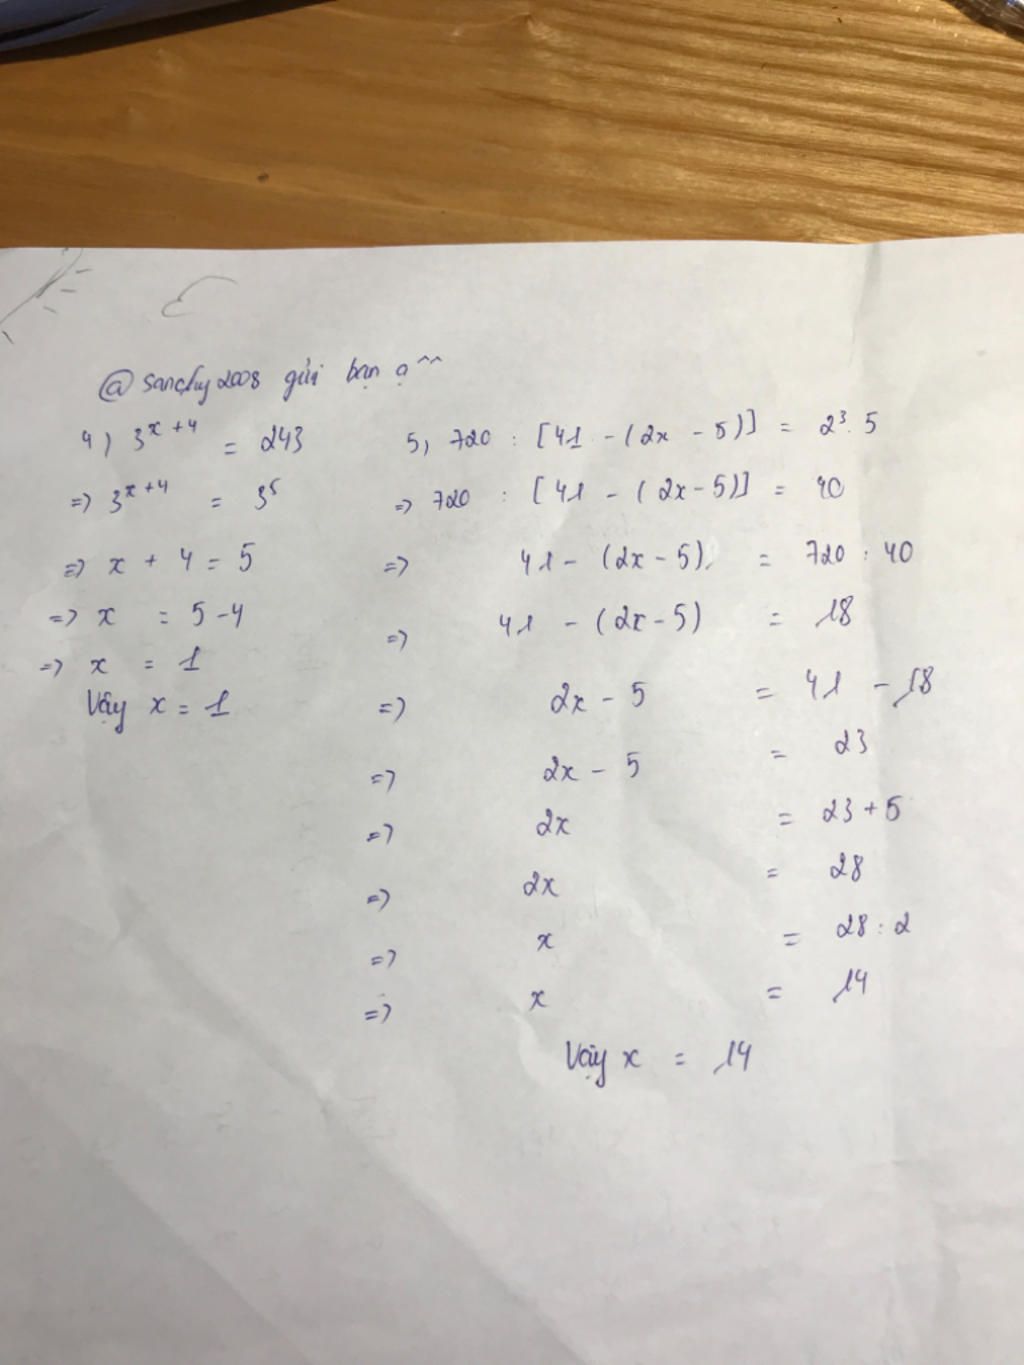 @sanchy2008 gửi bạn ạ ^^
4) 3^{x+4} = 243
=> 3^{x+4} = 3^5
=> x + 4 = 5
=> x = 5 - 4
=> x = 1
Vậy x = 1
5) 720 : [41 - (2x - 5)] = 2^3. 5
=> 720 : [41 - (2x - 5)] = 40
=> 41 - (2x - 5) = 720 : 40
=> 41 - (2x - 5) = 18
=> 2x - 5 = 41 - 18
=> 2x - 5 = 23
=> 2x = 23 + 5
=> 2x = 28
=> x = 28 : 2
=> x = 14
Vậy x = 14